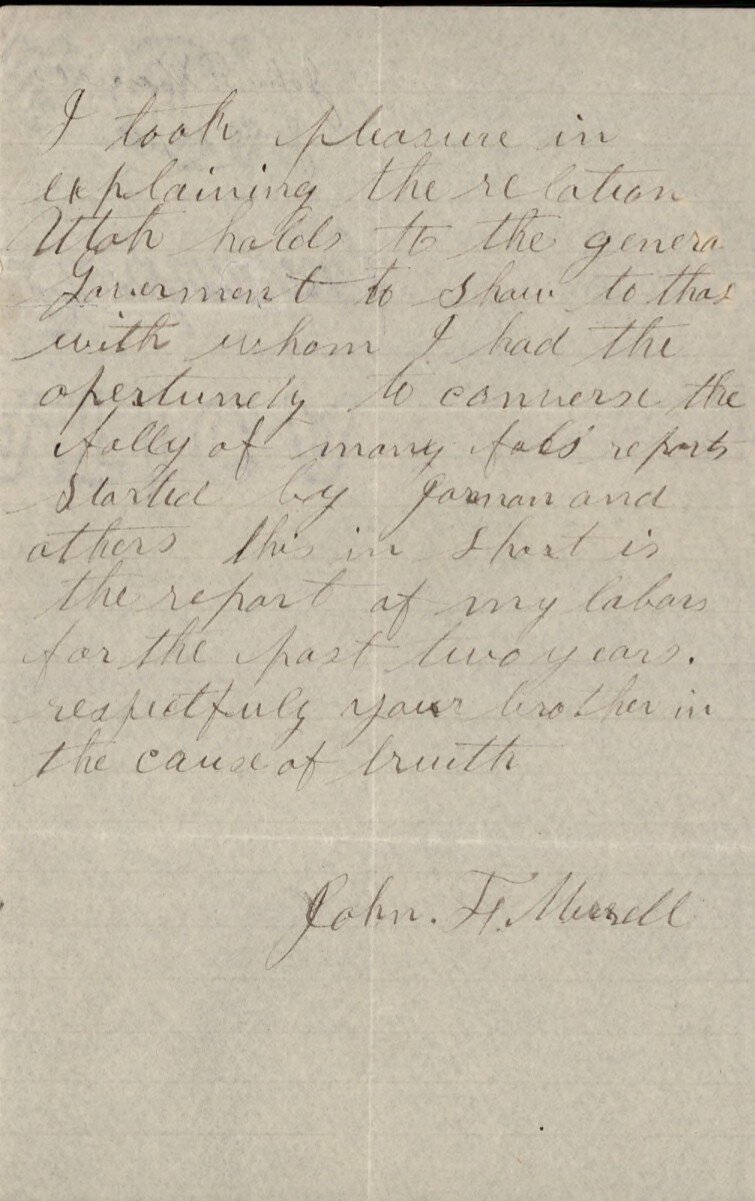 I took pleasure in
explaining the relation
Utah holds to the genera
Goverment to show to thos
with whom I had the
opertunety to converse the
folly of many fals reports
started by Jarman and
others this in short is
the report of my labors
for the past two years.
respectfuly your brother in
the cause of truith
John. F. Merrell